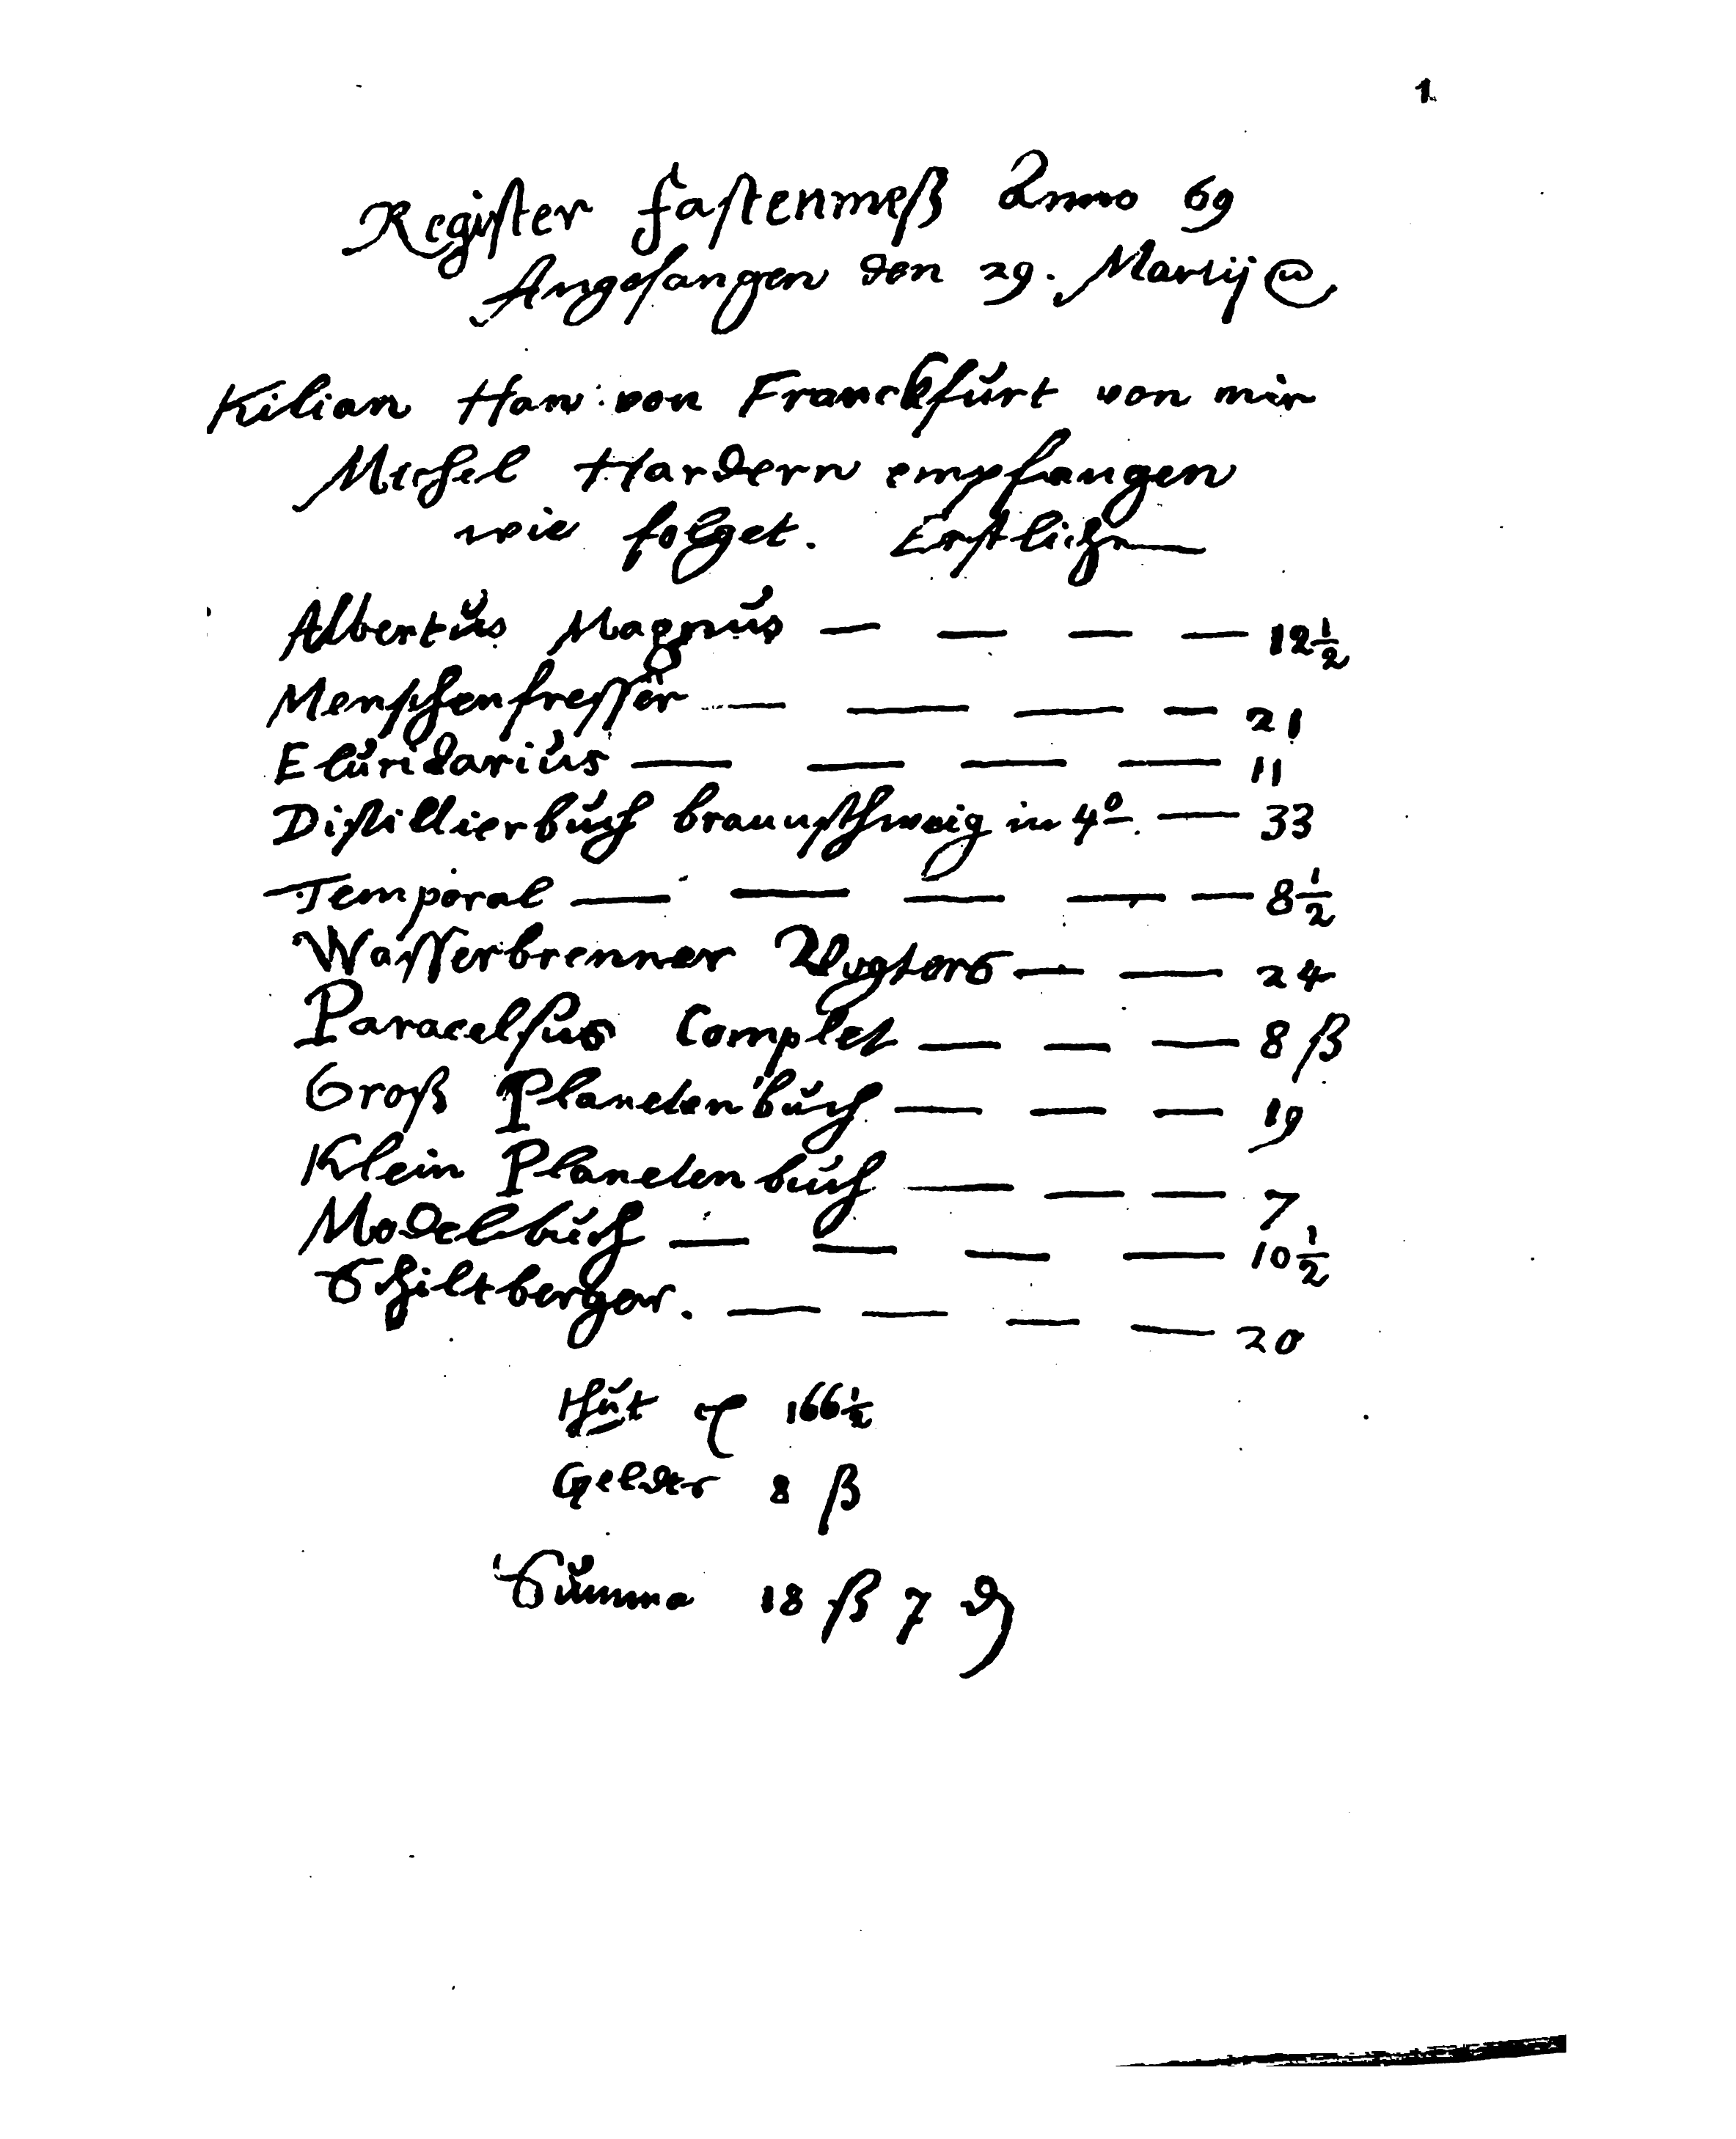 1
Register Fastenmeß Anno 69
Angefangen den 29. Martij
Kilian Han von Franckfurt von mir
Michel Hardern empfangen
wie folget. Erstlich
Albertus Magnus — — — — 12½
Menschenfresser — — — — 21
Elucidarius — — — — 11
Distillierbuch braunschweig in 4º — 33
Temporal — — — — — 8½
Wasserbrenner — — 24
Paracelsus Complet — — — 8 ß
Groß Planetenbuch — — — 19
Klein Planetenbuch — — — 7
Modelbuch — — — — 10½
Schiltberger. — — — — 20
Thut 166½
8 ß
Summa 18 ß 7 ₰